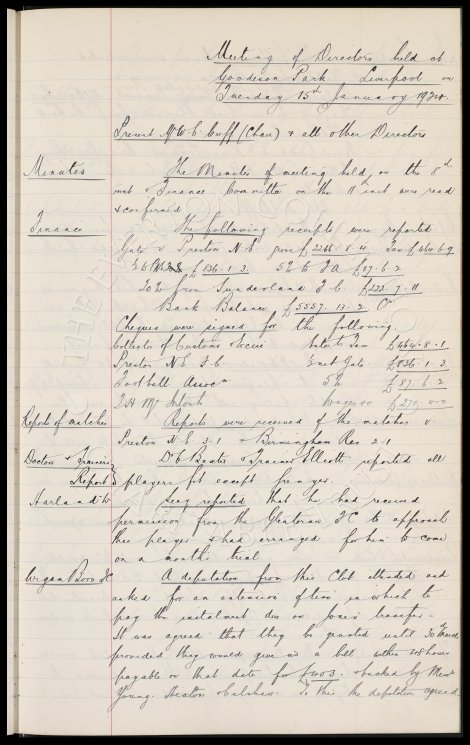 Meeting of Directors held at
Goodison Park Liverpool on
Tuesday 15th January 1924.
Present Mr W. C. Cuff (Chair) & all other Directors
Minutes The Minutes of meeting held on the 8th
inst & Finance Committee on the 11th inst were read
& confirmed
Finance The following receipts were reported
Gate v Preston N.E. gross £2266.8.
£836.1.3. 5% to FA £87.6.2
20% from Sunderland F.C. £222.7.11
Bank Balance £5557.13.2 Cr
Cheques were signed for the following
Collector of Customs & Excise Entets Tax £464.8.1
Preston N.E. F.C. ½ net Gate £836.1.3
Football Assocn 5% £87.6.2
wages &c £279.0.0
Reports of matches Reports were received of the matches v
Preston N.E. 3-1 & Birmingham Res 2-1
Doctors & Trainers Dr Baxter & Trainer Elliott reported all
Report players fit except
Harland W Secy reported that he had received
permission from the Glentoran FC to approach
this player & had arranged for him to come
on a month's trial
Wigan Boro FC A deputation from this Club attended and
asked for an extension of time in which to
pay the instalment due on transfer.
It was agreed that they be granted until 30th
provided they would give us a bill within 48 hours
payable on that date for £403. & backed by Messrs
Young. Heaton & To this the deputation agreed